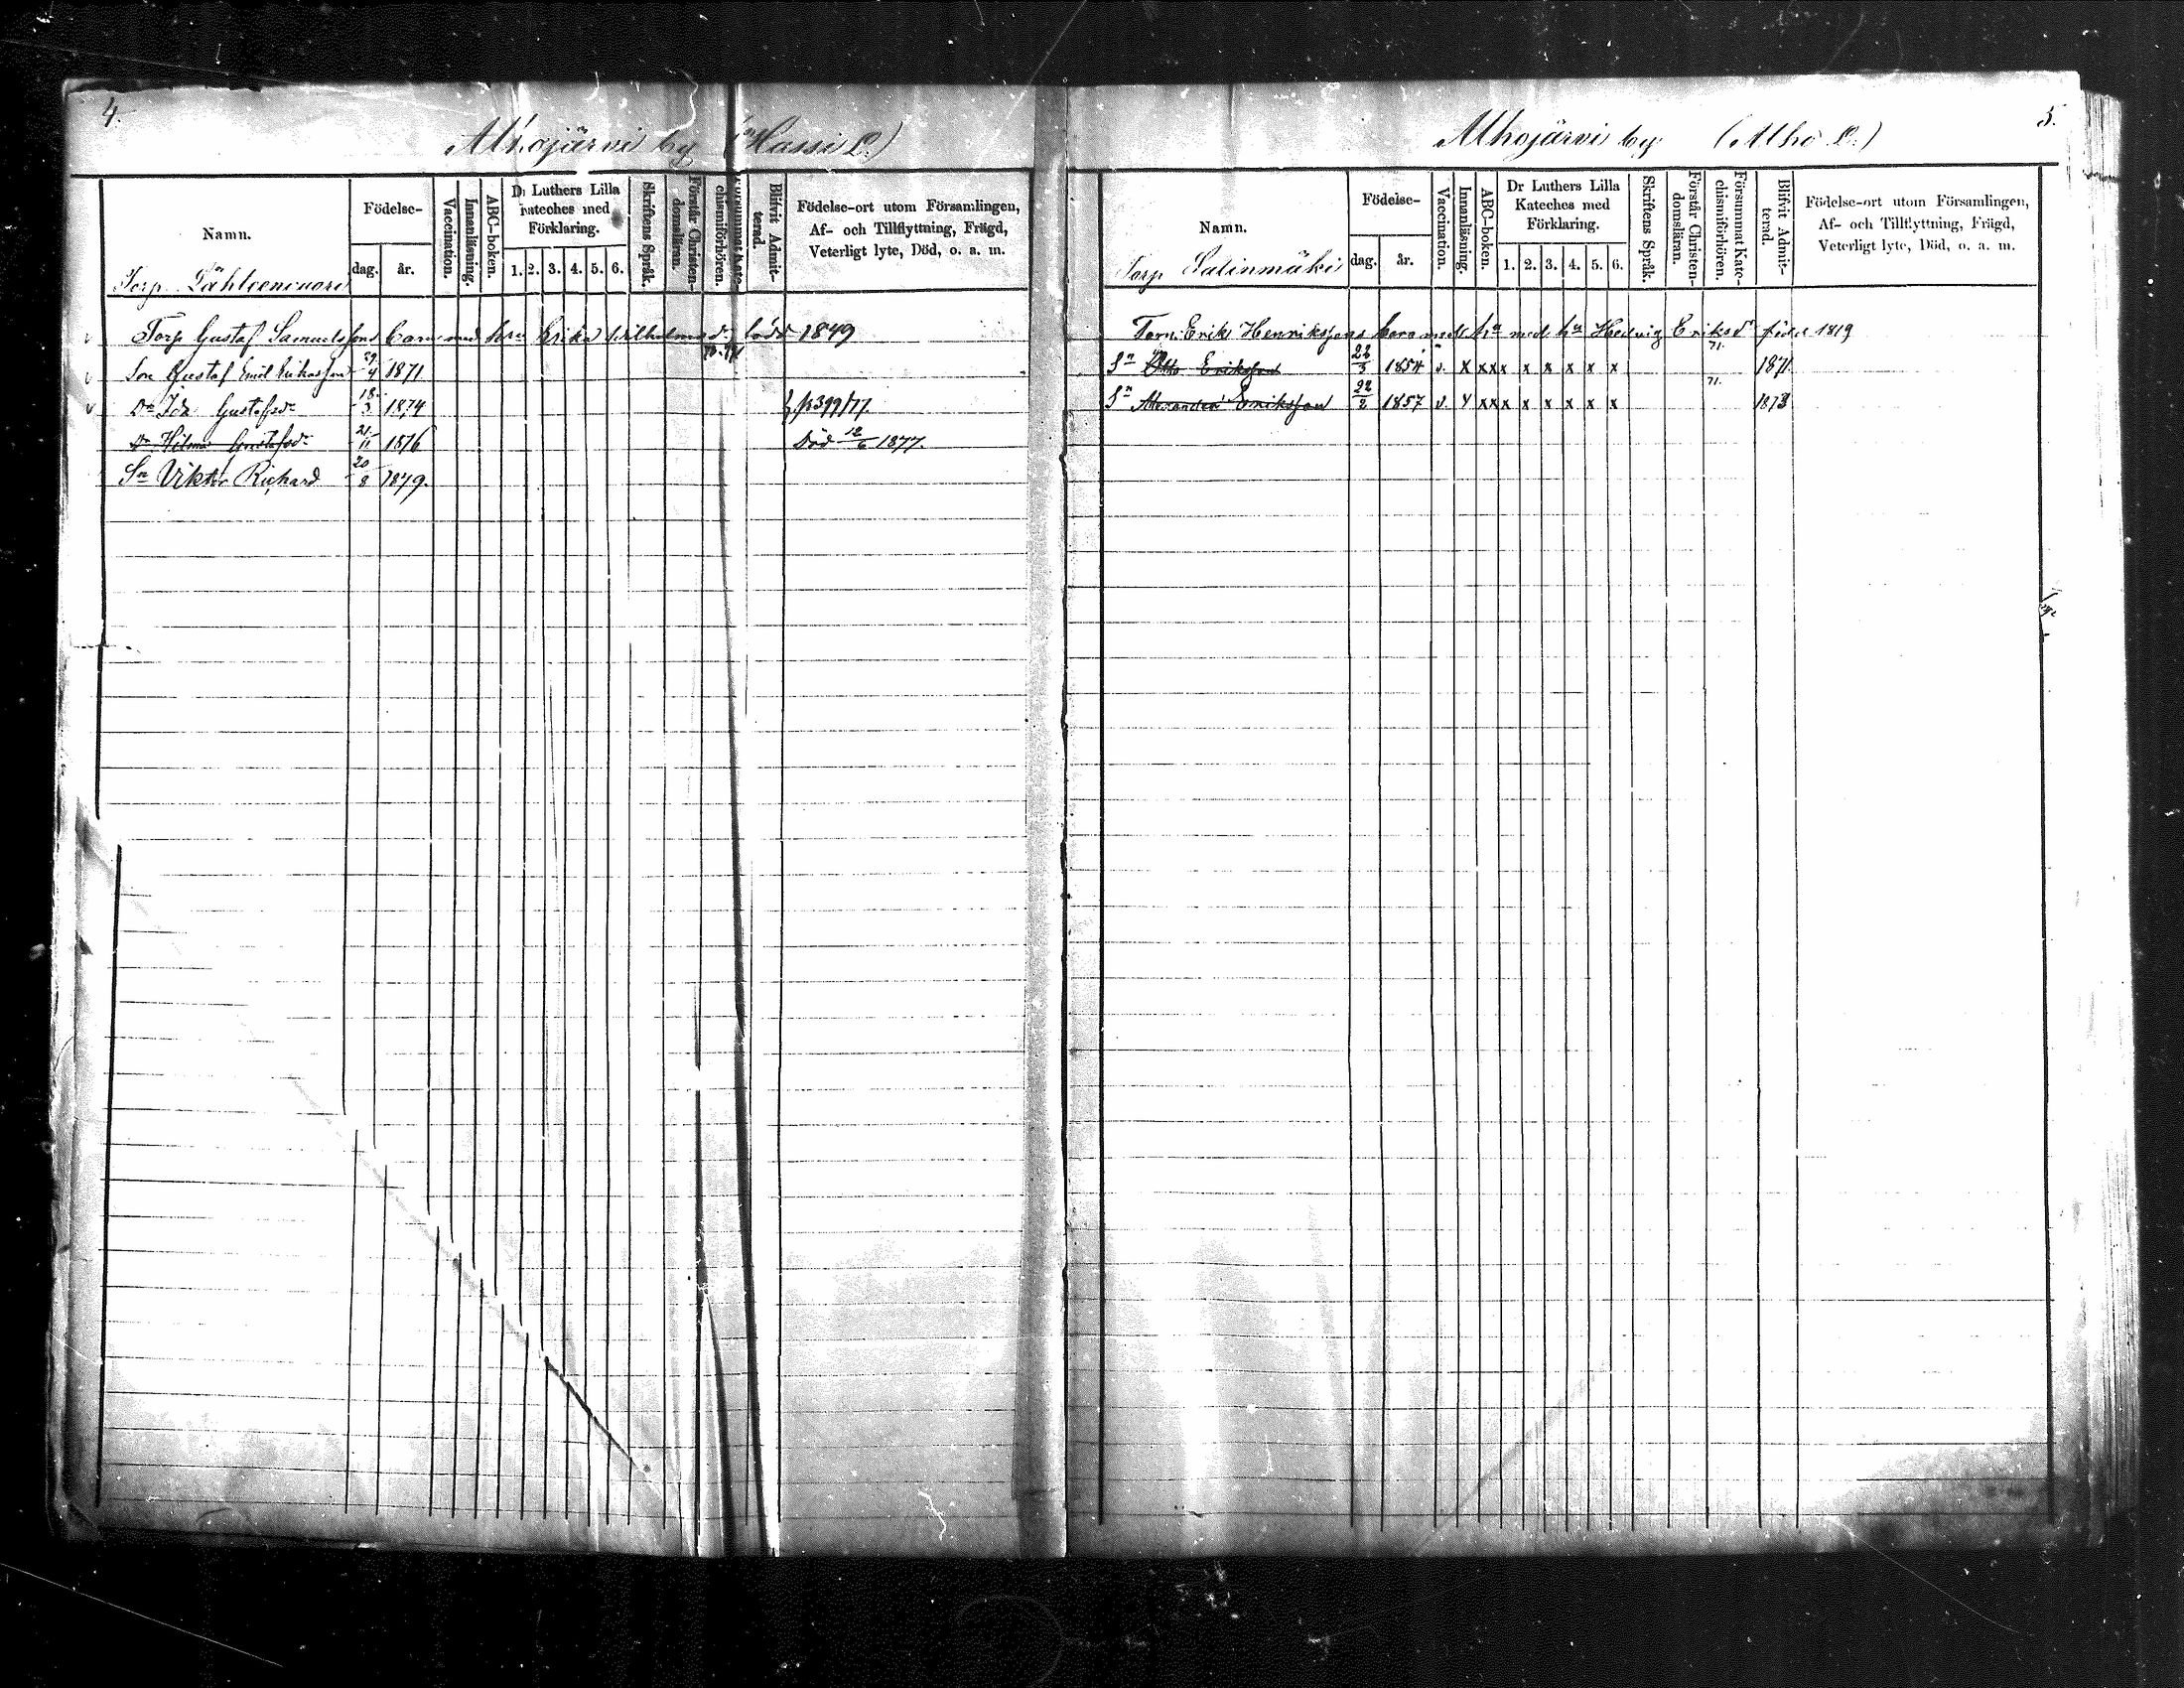 4.
Alhojärvi by (Hassi L.)
Namn.
Födelse-
dag.
år.
Vaccination.
Innanläsning.
ABC-boken.
Dr Luthers Lilla
Kateches med
Förklaring.
1. 2. 3. 4. 5. 6.
Skriftens Språk.
Förstår Christen-
domsläran.
Försummat Kate-
chismiförhören.
Blifvit Admit-
terad.
Födelse-ort utom Församlingen,
Af- och Tillflyttning, Frägd,
Veterligt lyte, Död, o. a. m.
Torp
Torp Gustaf Samuelssons barn med hru Erika Wilhelmasdr född 1849
Son Gustaf Emil 29/4 1871
Dr Ida Gustafsdr 18/3 1874 p 399/77.
Dr Hilma Gustafsdr 21/11 1876 Död 12/6 1877.
Sn Viktor Richard 20/8 1879.
5.
Alhojärvi by (Alho L.)
Namn.
Födelse-
dag.
år.
Vaccination.
Innanläsning.
ABC-boken.
Dr Luthers Lilla
Kateches med
Förklaring.
1. 2. 3. 4. 5. 6.
Skriftens Språk.
Förstår Christen-
domsläran.
Försummat Kate-
chismiförhören.
Blifvit Admit-
terad.
Födelse-ort utom Församlingen,
Af- och Tillflyttning, Frägd,
Veterligt lyte, Död, o. a. m.
Torp Salinmäki
Torp. Erik Henrikssons barn med hu med hu Hedvig Eriksdr född 1819
Sn Otto Eriksson 22/3 1854 v. x xx x x x x x x 71. 1871.
Sn Alexander Eriksson 22/2 1857 v. y xx x x x x x x 71. 1873